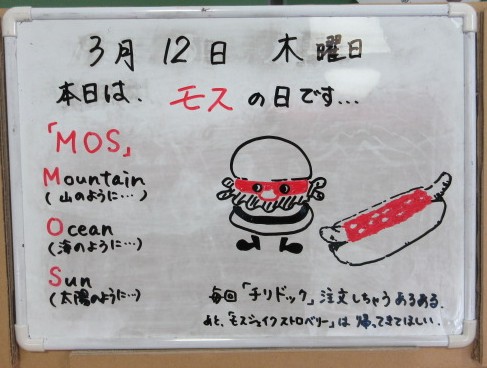 3月 12日 木曜日
本日は、モスの日です…
「MOS」
Mountain
(山のように…)
Ocean
(海のように…)
Sun
(太陽のように…)
毎回「チリドック」注文しちゃうあるある。
あと、「モスシェイクストロベリー」は帰ってきてほしい。